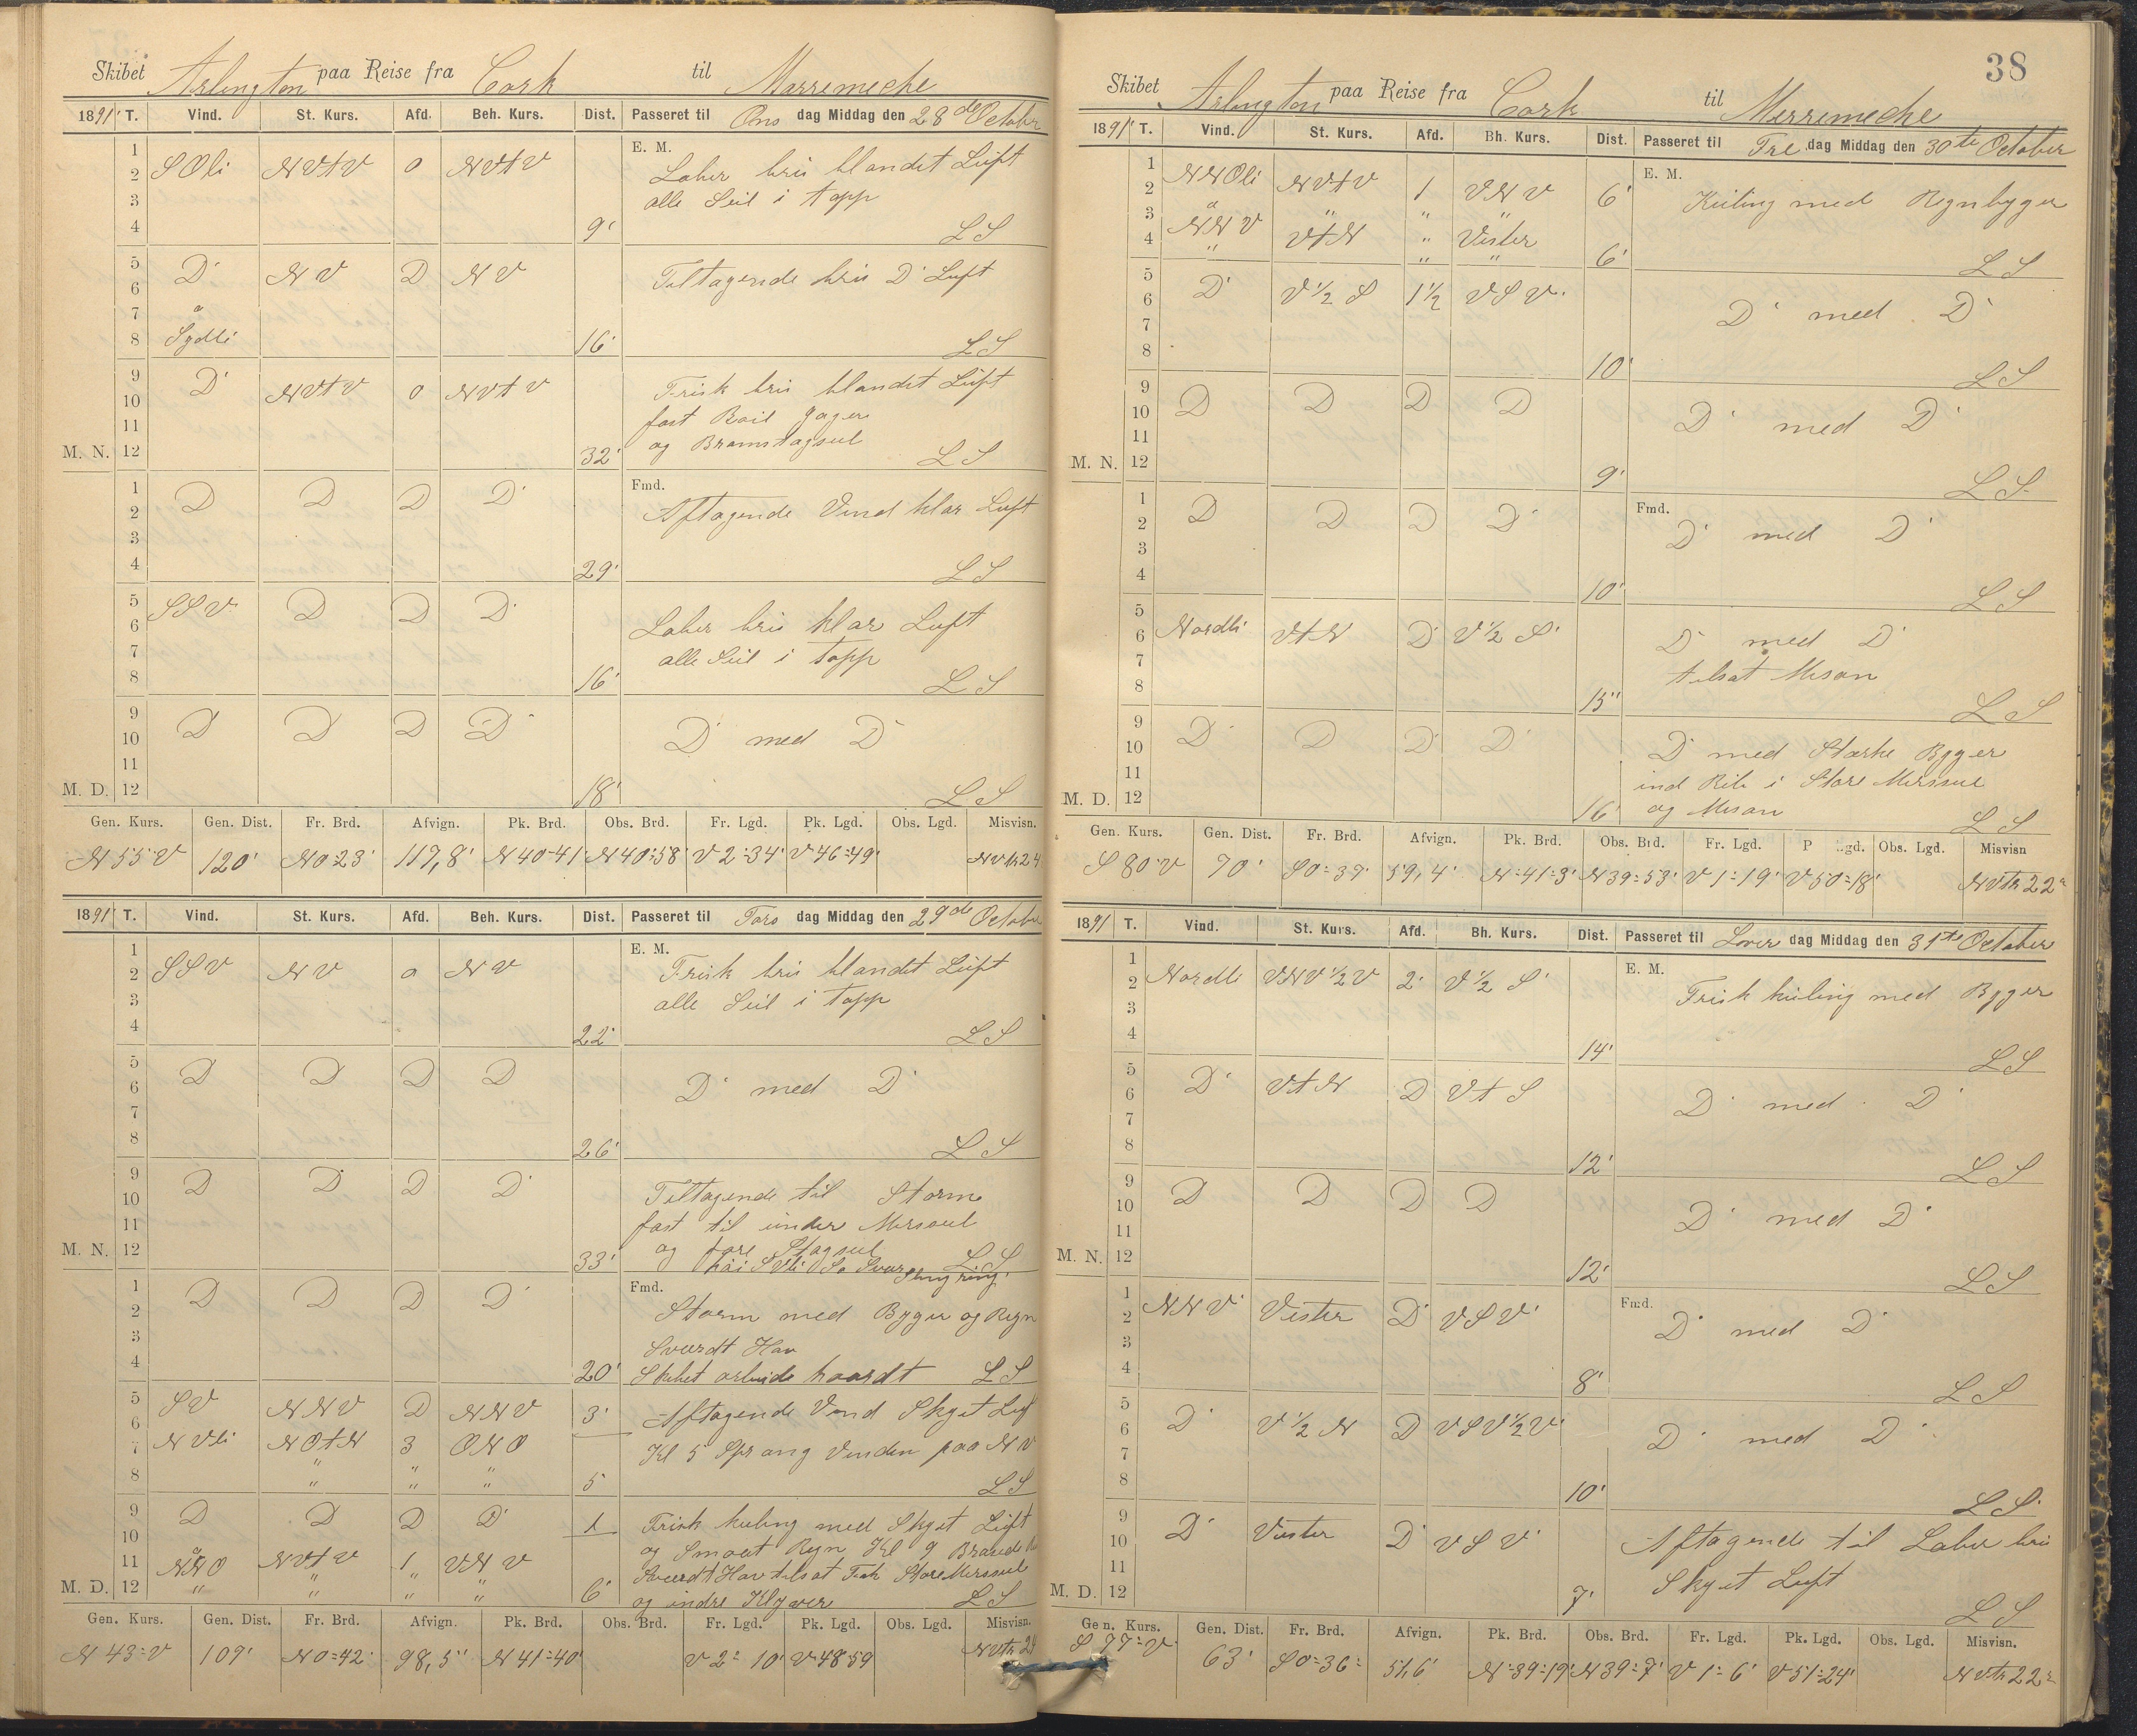 Skibet Arlington paa Reise fra Cork til Marremeche
1891 T. Vind. St. Kurs. Afd. Beh. Kurs. Dist. Passeret til Ons dag Middag den 28de October
1 E. M.
2 SOli NVtV 0 NVtV Laber bris blandet Luft
3 alle Seil i topp
4 9' LS
5
6 D NV D NV Tiltagende bris D Luft
7 a
8 Sydli 16' LS
9
10 D NVtV 0 NVtV Frisk bris blandet Luft
11 fast Roil Jager
M. N. 12 og Bramstagseil 32' LS
1 Fmd.
2 D D D D Aftagende Vind klar Luft
3
4 29' LS
5
6 SSV D D D Laber bris klar Luft
7 alle Seil i topp
8 16' LS
9
10 D D D D D med D
11
M. D. 12 18' LS
Gen. Kurs. Gen. Dist. Fr. Brd. Afvign. Pk. Brd. Obs. Brd. Fr. Lgd. Pk. Lgd. Obs. Lgd. Misvisn.
N 55 V 120' N 0 23' 117,8' N 40-41' N 40:58' V 2:34' V 46=49'
1891 T. Vind. St. Kurs. Afd. Beh. Kurs. Dist. Passeret til Tors dag Middag den 29de October
1 E. M.
2 SSV NV 0 NV Frisk bris blandet Luft
3 alle Seil i topp
4 22' LS
5
6 D D D D D med D
7
8 26' LS
9
10 D D D D Tiltagende til Storm
11 fast til under Merseil
M. N. 12 og fore Stagseil 33' LS
1 Fmd.
2 D D D D Storm med Byger og Regn
3 Svært Hav
4 20' Skibet arbeide haardt LS
5 SV NNV D NNV 3' Aftagende Vind Skyet Luf
6
7 NVli NOtN 3 ONO Kl 5 Sprang Vinden paa NV
8 " " " 5 LS
9 D D D D 1 Frisk kuling med Skyet Luft
10 og Smaat Regn Kl 9
11 a NNO NVtV 1 VNV Sværdt Hav tilsat Fok Store Merseil
M. D. 12 " " " " 6' og indre Klyver LS
Gen. Kurs. Gen. Dist. Fr. Brd. Afvign. Pk. Brd. Obs. Brd. Fr. Lgd. Pk. Lgd. Obs. Lgd. Misvisn.
N 43=V 109' N 0=42' 98,5" N 41=40' V 2=10' V 48 59
38
Skibet Arlington paa Reise fra Cork til Merremeche
1891 T. Vind. St. Kurs. Afd. Bh. Kurs. Dist. Passeret til Fre dag Middag den 30te October
1 E. M.
2 NNOli NVtV 1 VNV 6' Kuling med Regnbyger
3 a " " "
4 NNV VtN " Vester 6' LS
5
6 D V½S 1½ VSV D med D
7
8 10' LS
9
10 D D D D D med D
11
M. N. 12 9' LS
1 Fmd.
2 D D D D D med D
3
4 10' LS
5
6 Nordli VtN D V½S D med D
7 tilsat Mesan
8 15" LS
9
10 D D D D D med Stærke Byger
11 ind Reb i Store Merseil
M. D. 12 16' og Mesan LS
Gen. Kurs. Gen. Dist. Fr. Brd. Afvign. Pk. Brd. Obs. Brd. Fr. Lgd. P Lgd. Obs. Lgd. Misvisn
S 80 V 70' S 0=39' 59,4' N=41=3' N 39=53' V 1=19' V 50=18' NVtr 22°
1891 T. Vind. St. Kurs. Afd. Bh. Kurs. Dist. Passeret til Lover dag Middag den 31te October
1 E. M.
2 Nordli VNV½V 2 V½S Frisk kuling med Byger
3
4 14' LS
5
6 D VtN D VtS D med D
7
8 12' LS
9
10 D D D D D med D
11
M. N. 12 12' LS
1 Fmd.
2 NNV Vester D VSV D med D
3
4 8' LS
5
6 D V½N D VSV½V D med D
7
8 10' LS
9
10 D Vester D VSV Aftagende til Laber bris
11 Skyet Luft
M. D. 12 7' LS
Gen. Kurs. Gen. Dist. Fr. Brd. Afvign. Pk. Brd. Obs. Brd. Fr. Lgd. Pk. Lgd. Obs. Lgd. Misvisn.
S 77=V 63' S 0=36= 51,6' N=39=19' N 39=7' V 1=6' V 51=24' NVtr 22°